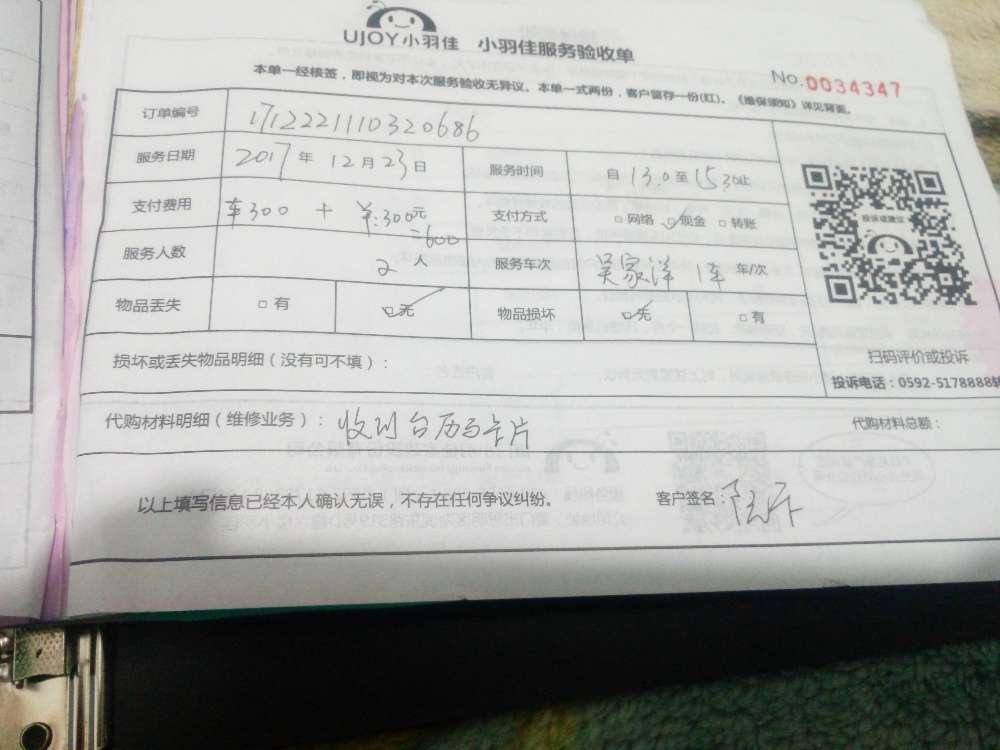 UJOY小羽佳 小羽佳服务验收单
No.0034347
本单一经核签，即视为对本次服务验收无异议。本单一式两份，客户留存一份(红)。《维保须知》详见背面。
订单编号 1712221110320686
服务日期 2017年12月23日 服务时间 自13.0至15.30止
支付费用 车300 + 羊:300元 =600 支付方式 □网络 ☑现金 □转账
服务人数 2人 服务车次 吴家洋 1车 车/次
物品丢失 □有 ☑无 物品损坏 ☑无 □有
投诉或建议
扫码评价或投诉
投诉电话：0592-5178888转
损坏或丢失物品明细（没有可不填）：
代购材料明细（维修业务）：收到台历与卡片 代购材料总额：
以上填写信息已经本人确认无误，不存在任何争议纠纷。 客户签名：